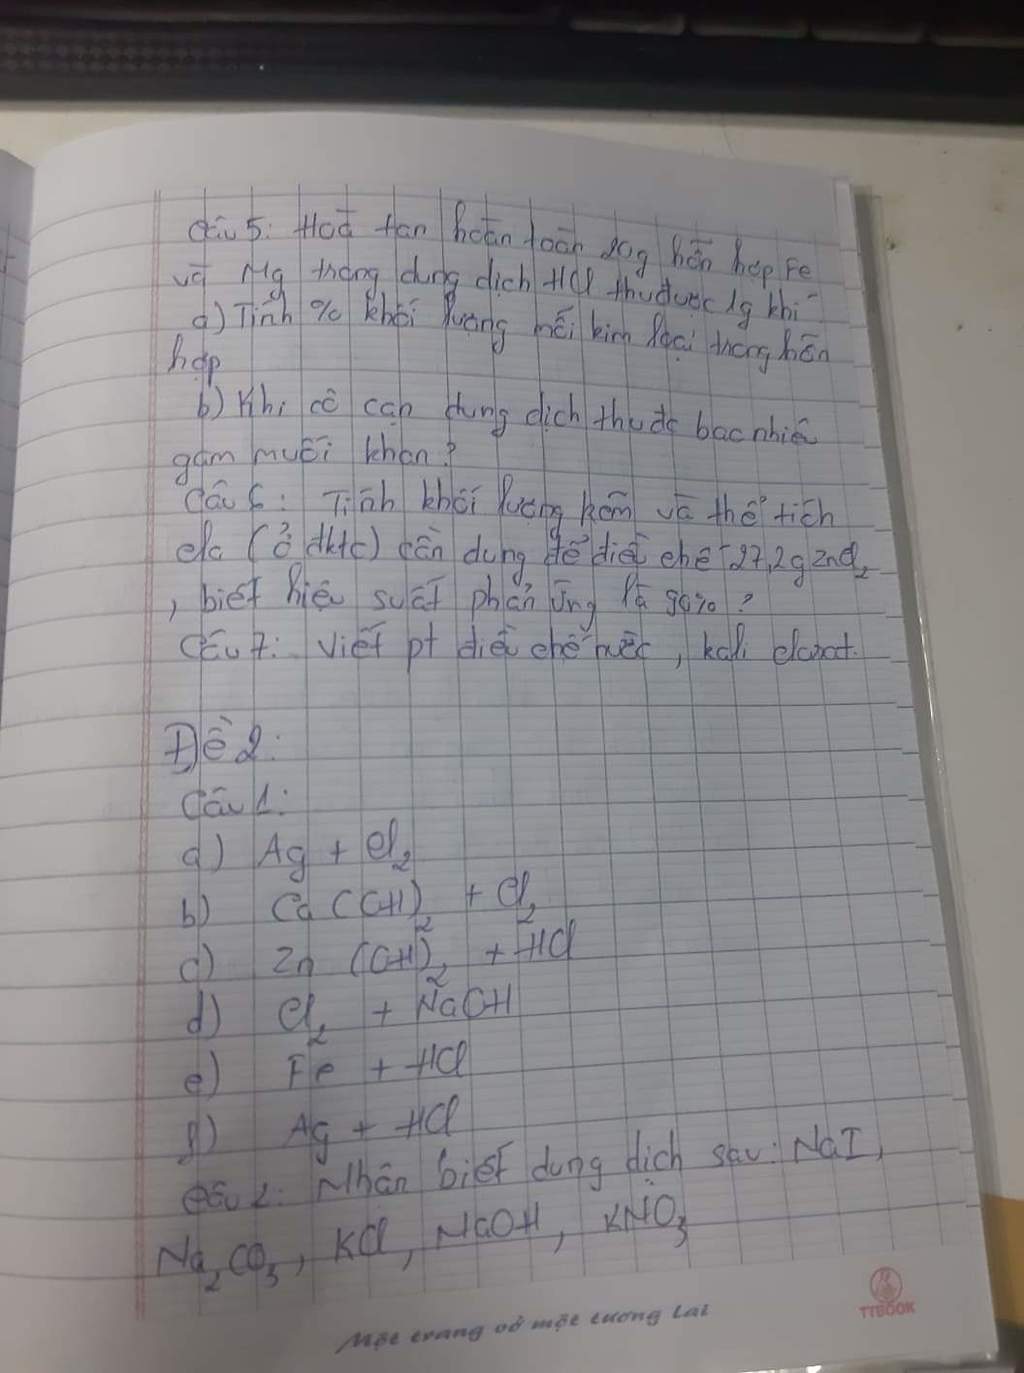 Câu 5: Hoà tan hoàn toàn 20g hỗn hợp Fe
và Mg trong dung dịch HCl thu được 1g khí
a) Tính % khối lượng mỗi kim loại trong hỗn
hợp
b) Khi cô cạn dung dịch thu đc bao nhiêu
gam muối khan?
Câu 6: Tính khối lượng kẽm và thể tích
clo (ở đktc) cần dùng để điều chế 27,2g ZnCl2
, biết hiệu suất phản ứng là 90%?
Câu 7: Viết pt điều chế nước, kali clorat.
Đề 2:
Câu 1:
a) Ag + Cl2
b) Ca(OH)2 + Cl2
c) Zn(OH)2 + HCl
d) Cl2 + NaOH
e) Fe + HCl
g) Ag + HCl
Câu 2: Nhận biết dung dịch sau: NaI,
Na2CO3, KCl, NaOH, KNO3
Một trang vở một tương lai
TTBOOK